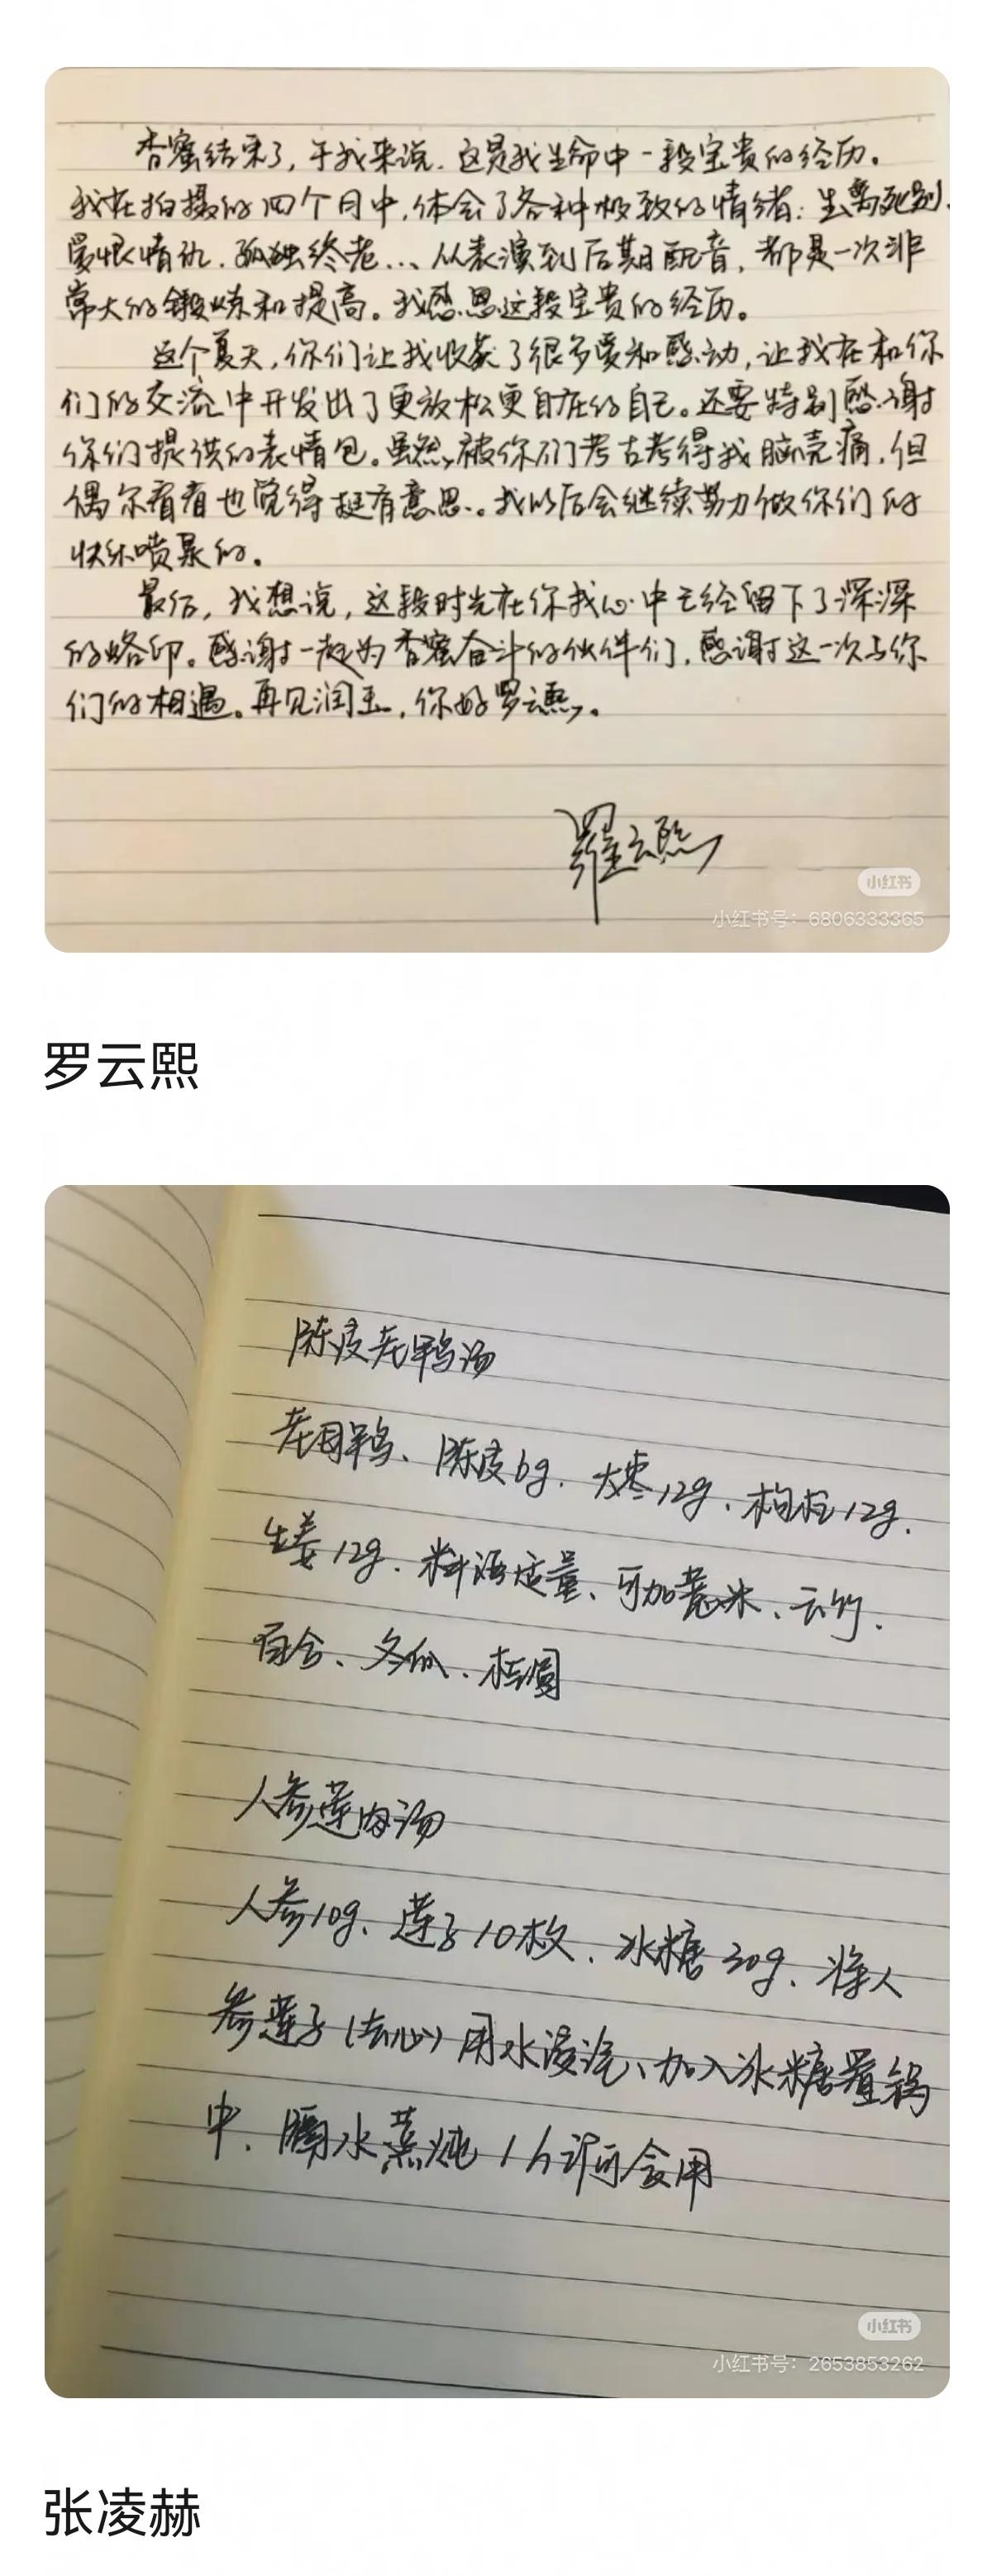 香蜜结束了,于我来说,这是我生命中一段宝贵的经历。
我在拍摄的四个月中,体会了各种极致的情绪:生离死别、
爱恨情仇、孤独终老…、从表演到后期配音,都是一次非
常大的锻炼和提高。我感恩这段宝贵的经历。
这个夏天,你们让我收获了很多爱和感动,让我在和你
们的交流中开发出了更放松更自在的自己。还要特别感谢
你们提供的表情包。虽然被你们考古考得我脑壳痛,但
偶尔看看也觉得挺有意思。我以后会继续努力做你们的
快乐喷泉的。
最后,我想说,这段时光在你我心中已经留下了深深
的烙印。感谢一起为香蜜奋斗的伙伴们,感谢这一次与你
们的相遇。再见润玉,你好罗云熙。
羅云熙
小红书
小红书号:6806333365
罗云熙
陈皮老鸭汤
老母鸭、陈皮6g、大枣12g、枸杞12g、
生姜12g、料酒适量、可加薏米、玉竹、
百合、冬瓜、桂圆
人参莲肉汤
人参10g、莲子10枚、冰糖30g、将人
参莲子(去心)用水浸泡、加入冰糖置锅
中、隔水蒸炖1h 即可食用
小红书
小红书号:2653853262
张凌赫